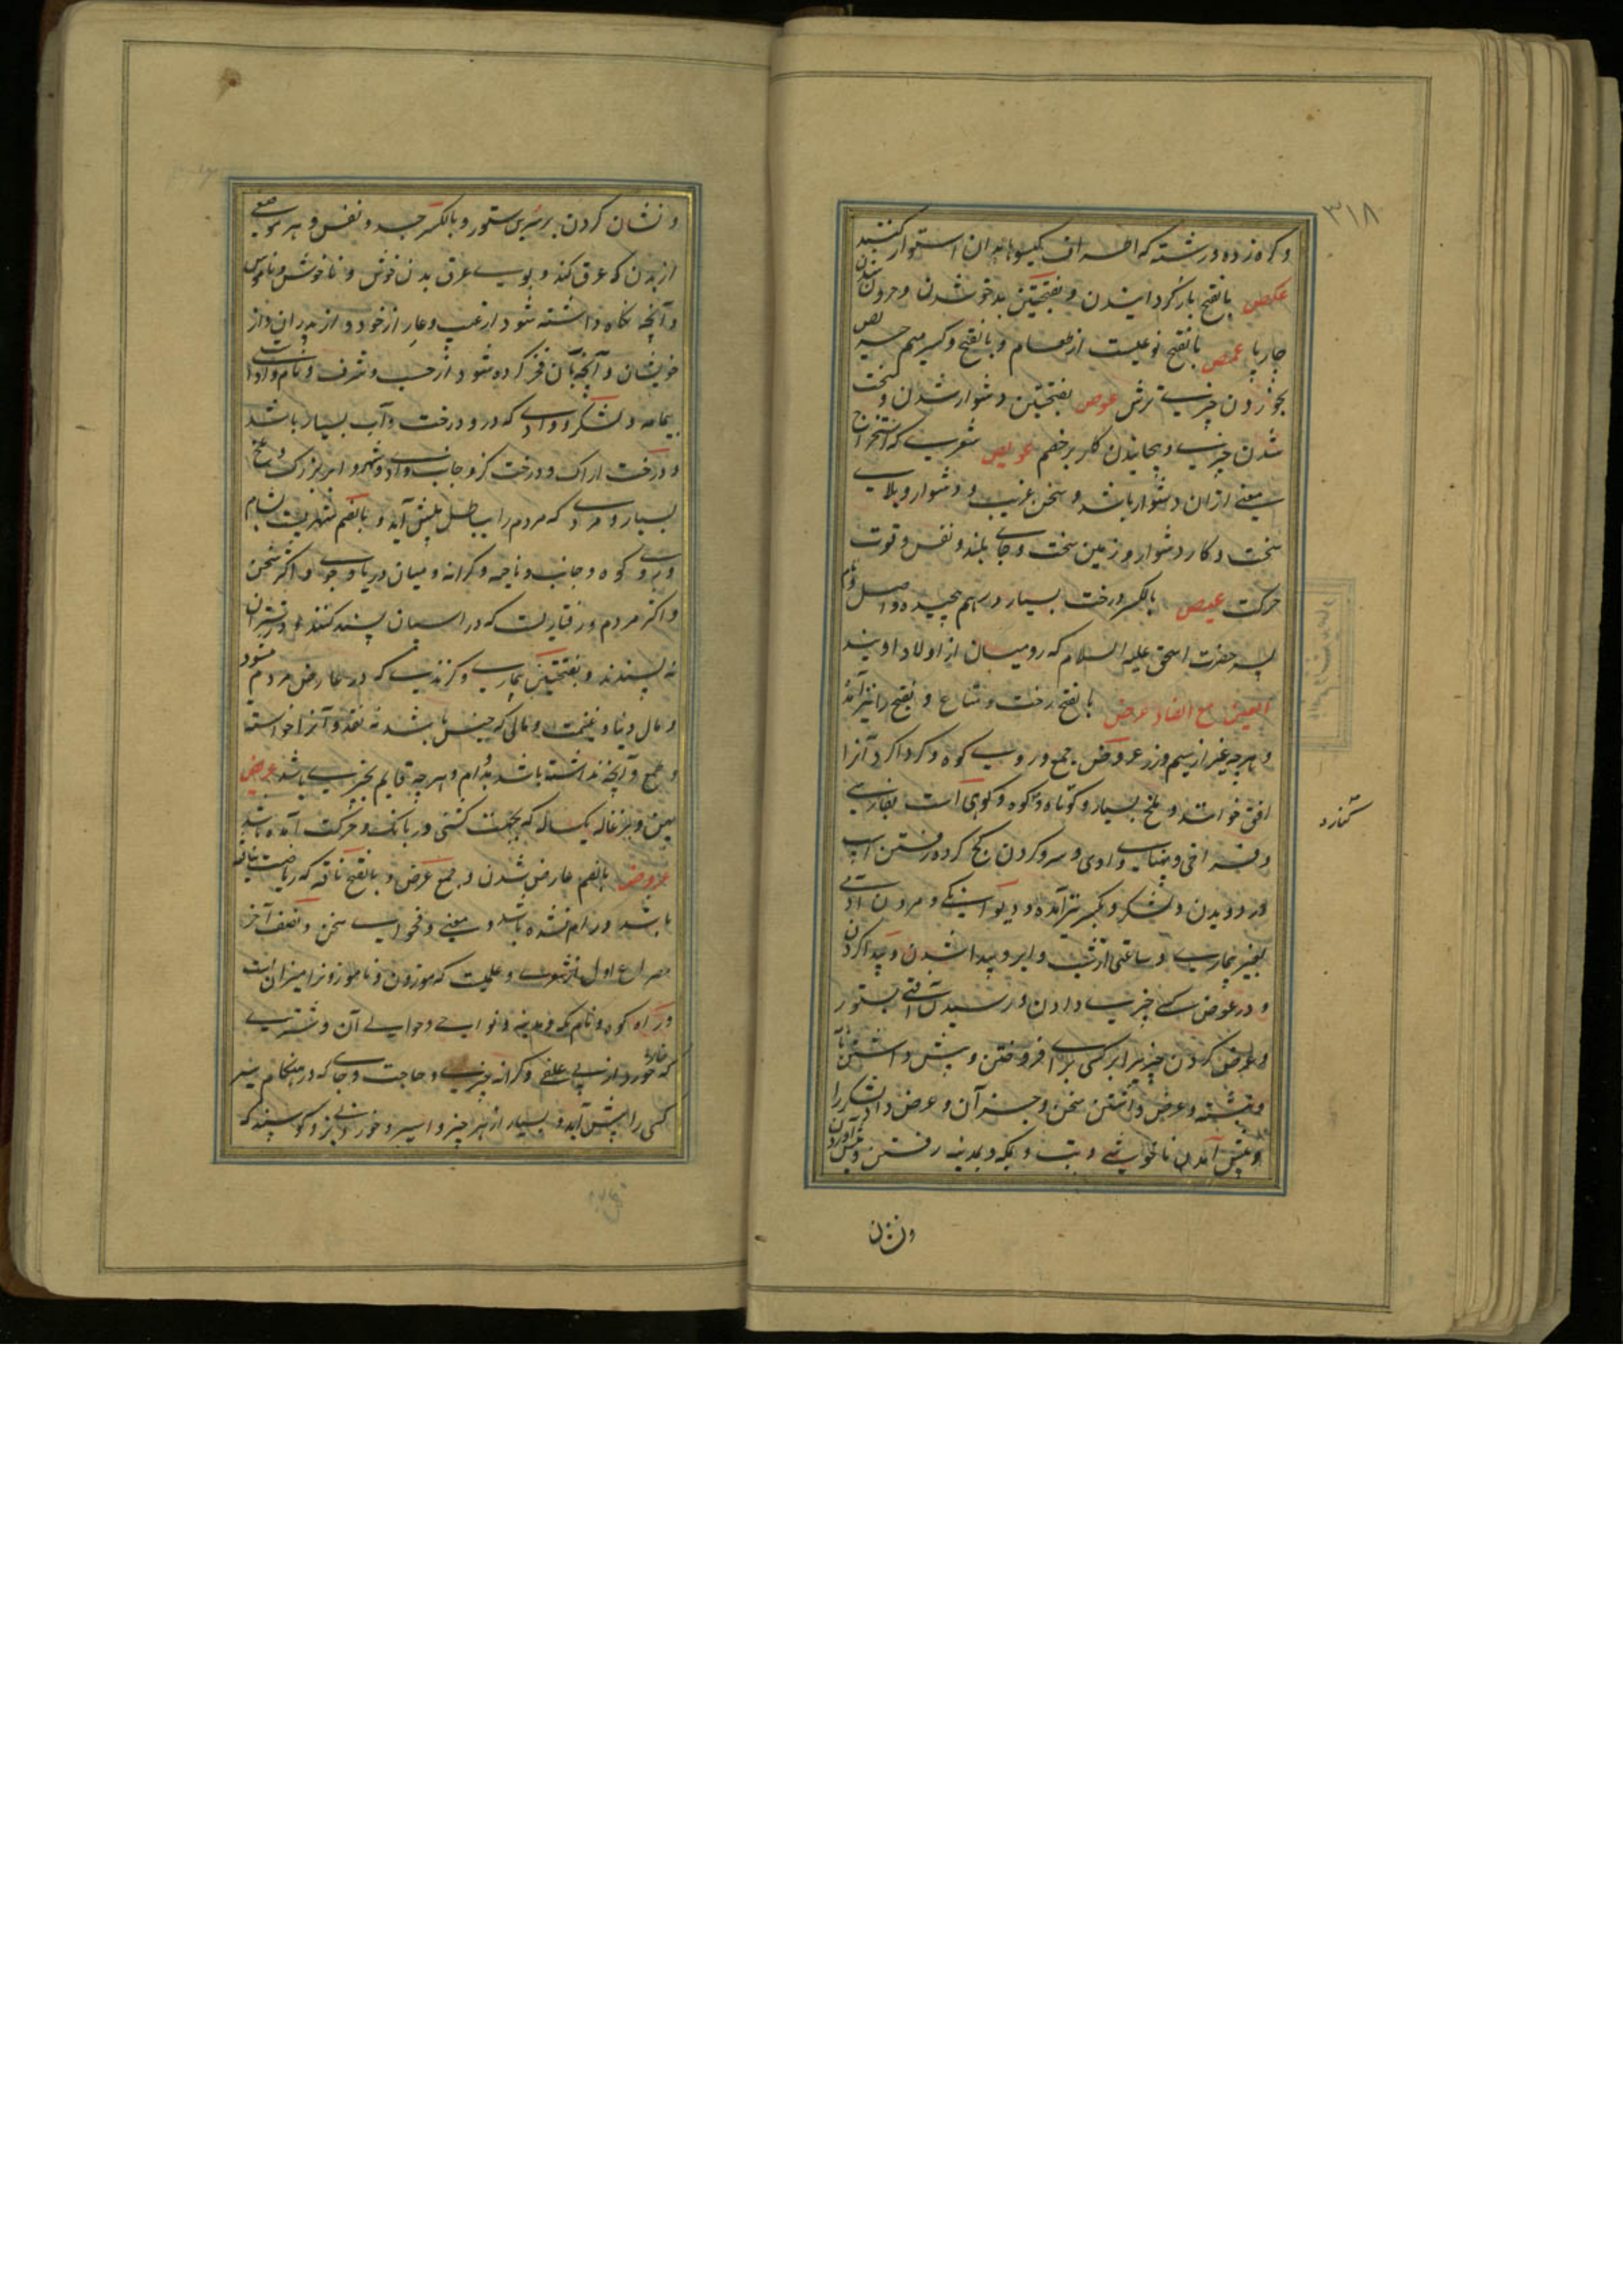 ۳۱۸
و کره زده و رشته که اطراف گیسوها بدان استوار کنند
عکص بالفتح بازگردانیدن و بفتحتین بدخو شدن و حرون شدن
چارپا عمص بالفتح نوعیست از طعام و بالفتح و کسر میم حریص
بخوردن چیزی ترش عوص بفتحتین دشوار شدن و سخت
شدن چیزی و پیچانیدن کار بر خصم عویص شعری که استخراج
معنی ازان دشوار باشد و سخن غریب و دشوار و بلای
سخت و کار دشوار و زمین سخت و جای بلند و نفس و قوت
حرکت عیص بالکسر درخت بسیار در هم پیچیده و اصل و نام
پسر حضرت اسحق علیه السلام که رومیان از اولاد اویند
العین مع الضاد عرض بالفتح رخت و متاع و بفتح را نیز آمده
و هرچه غیر از سیم و زر عروض جمع و روی کوه و کرداکرد آنرا
افق خوانند و ملخ بسیار و کوتاه و کوه و کوهی است بفارس
و فراخی و پهنای وادی و سر و گردن کج کرده رفتن اسپ
در دویدن و لشکر و بکسر نیز آمده و دیوانگی و مردن آدمی
بغیر بیماری و ساعتی از شب و ابر و پیدا شدن و پیدا کردن
و در عوض کسی چیزی دادن و رسیدن آفتی بستور
و عرض کردن چیز برابر کسی برای افروختن و پیش داشتن نامه
و نبشته و عرض داشتن سخن و جز آن و عرض دادن لشکر را
و پیش آمدن ناخوشی و تب و بمکه و بمدینه رفتن و پیش آوردن
و نشان
و نشان کردن بر سرین ستور و بالکسر جسد و نفس و هر موضعی
از بدن که عرق کند و بوی عرق بدن خوش و ناخوش و ناموس
و آنچه نگاه داشته شود از عیب و عار از خود و از پدران و از
خویشان و آنچه بآن فخر کرده شود از حسب و شرف و نام و ادای
پیمانه و لشکر و وادی که درو درخت و آب بسیار باشد
و درخت اراک و درخت گز و جانب وادی و شهر و ابر بزرگ و ملخ
بسیار و مردی که مردم را بباطل پیش آید و بالضم شهریست بشام
و روی کوه و جانب و ناحیه و کرانه و میان دریا و جوی و اکثر سخن
و اکثر مردم و رفتاریست که در اسپان پسند کنند و در شتران
نه پسندند و بفتحتین بیماری و گزندی که در عارض مردم شود
و مال دنیا و غنیمت و مالی که جنس باشد نه نقد و آنرا خواسته
و طمع و آنچه نداشته باشد دوام و هرچه قایم بچیزی باشد عریض
پهن و بزغاله یکساله که بجهت کشنی در بانگ و حرکت آمده باشد
عروض بالضم عارض شدن و جمع عرض و بالفتح ناقه که ریاضت نیافته
باشد و رام نشده باشد و معنی و فحوای سخن و نصف آخر
مصراع اول از شعر و علمیست که موزون و ناموزونرا میزان است
و راه کوه و نام مکه و مدینه و نواحی و حوالی آن و شتری
که خار خورد از بی علفی و کرانه چیزی و حاجت و جای که در هنگام سیر
کسی را پیش آید و بسیار از هر چیز و اسیر و خوردنی بز و گوسپند که